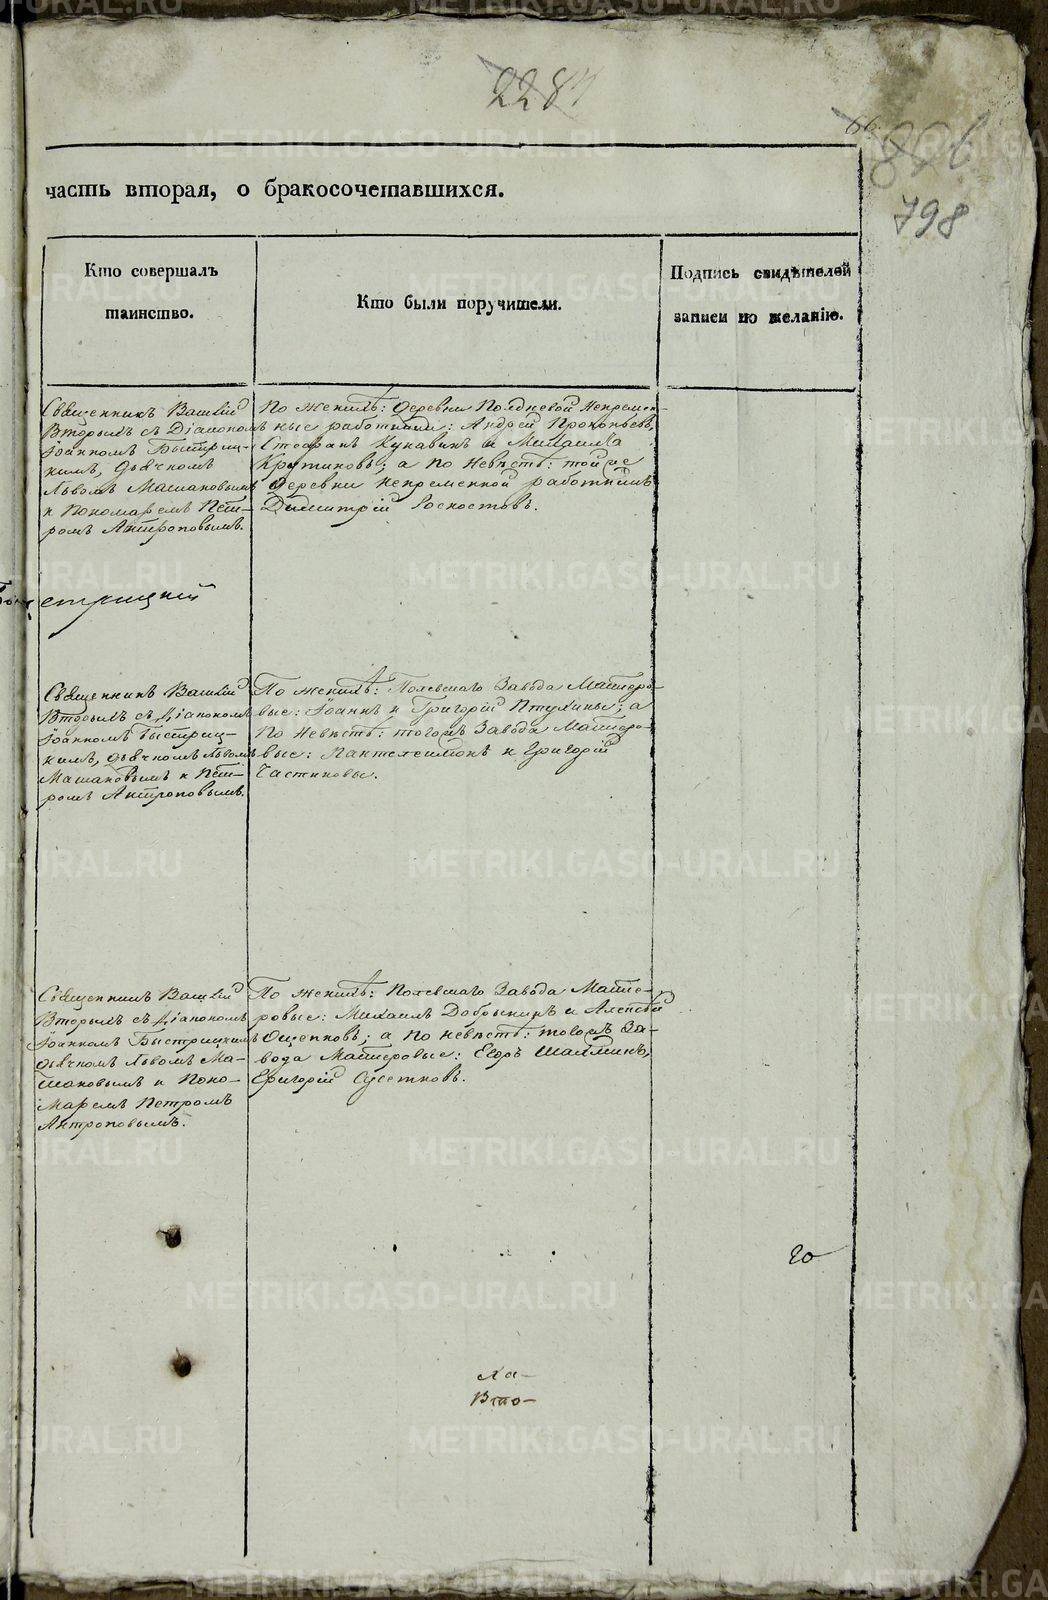 798
часть вторая, о бракосочетавшихся.
Кто совершалъ
таинство.
Кто были поручители.
Подпись свидѣтелей
записи по желанію.
Священникъ Василій
Вторыхъ съ Діакономъ
Іоанномъ Быстриц-
кимъ, дьячкомъ
Львомъ Машановымъ
и Пономаремъ Пет-
ромъ Антроповымъ.
По женихѣ: деревни Полдневой Непремен-
ные работники: Андрей Прокопьевъ,
Стефанъ Кукавинъ и Михаилъ
а по Невѣстѣ: той же
деревни непременной работникъ
Димитрій
Священникъ Василій
Вторыхъ съ Діакономъ
Іоанномъ Быстриц-
кимъ, дьячкомъ Львомъ
Машановымъ и Пет-
ромъ Антроповымъ.
По женихѣ: Полевскаго Завода Мастеро-
вые: Іоаннъ и Григорій Птухины; а
по Невѣстѣ: тогожъ Завода Мастеро-
вые: Пантелеимонъ и Григорій
Частиковы.
Священникъ Василій
Вторыхъ съ Діакономъ
Іоанномъ Быстрицкимъ
дьячкомъ Львомъ Ма-
шановымъ и Поно-
маремъ Петромъ
Антроповымъ.
По женихѣ: Полевскаго Завода Масте-
ровые: Михаилъ Добрынинъ и Алексѣй
а по невѣстѣ: тогожъ За-
вода Мастеровые: Егоръ
Григорій
Вто-
METRIKI.GASO-URAL.RU